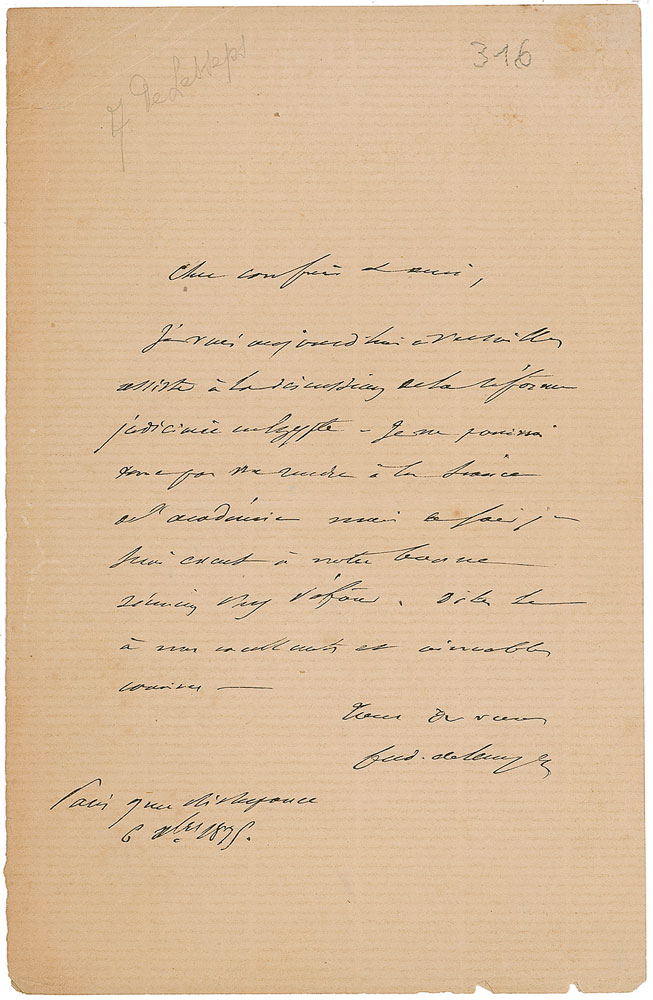 F de Lesseps
316
Cher confrère & ami,
Je vais aujourd'hui à Versailles
assister à la discussion de la réforme
judiciaire en Egypte - Je ne pourrai
donc pas me rendre à la séance
de l'académie mais ce soir je
serai exact à notre bonne
réunion Dites le
à nos excellents et aimables
convives —
Tout à vous
Ferd. de Lesseps
Paris
6 Xbre 1875.